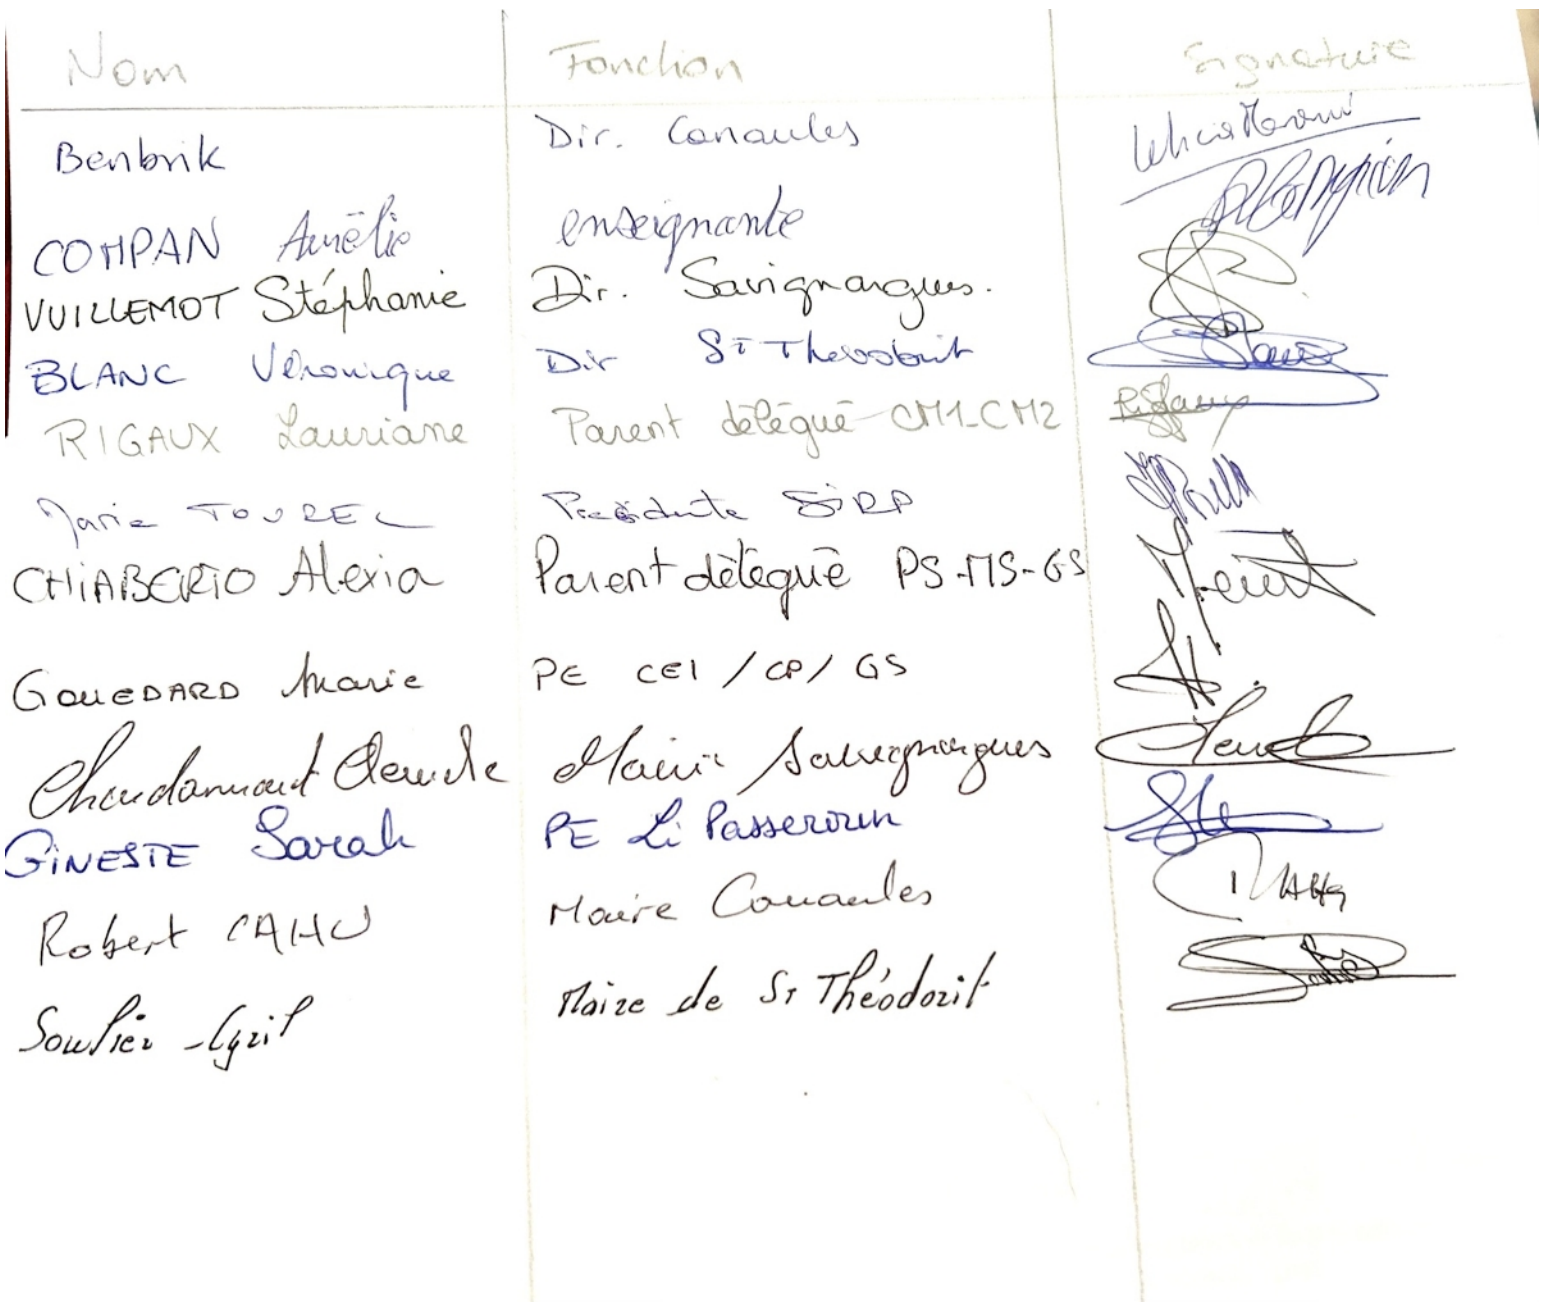 Nom Fonction Signature
Benbrik Dir. Canaules
COMPAN Aurélie enseignante
VUILLEMOT Stéphanie Dir. Savignargues.
BLANC Véronique Dir ST Theodorit
RIGAUX Lauriane Parent délégué CM1-CM2 Rigaux
Marie TOUREL Présidente SIRP
CHIABERTO Alexia Parent délégué PS-MS-GS
GOUEDARD Marie PE CE1 / CP / GS
Claude Maire Savignargues
GINESTE Sarah PE Li Passeroun
Robert CAHU Maire Canaules
Soulier Cyril Maire de St Théodorit